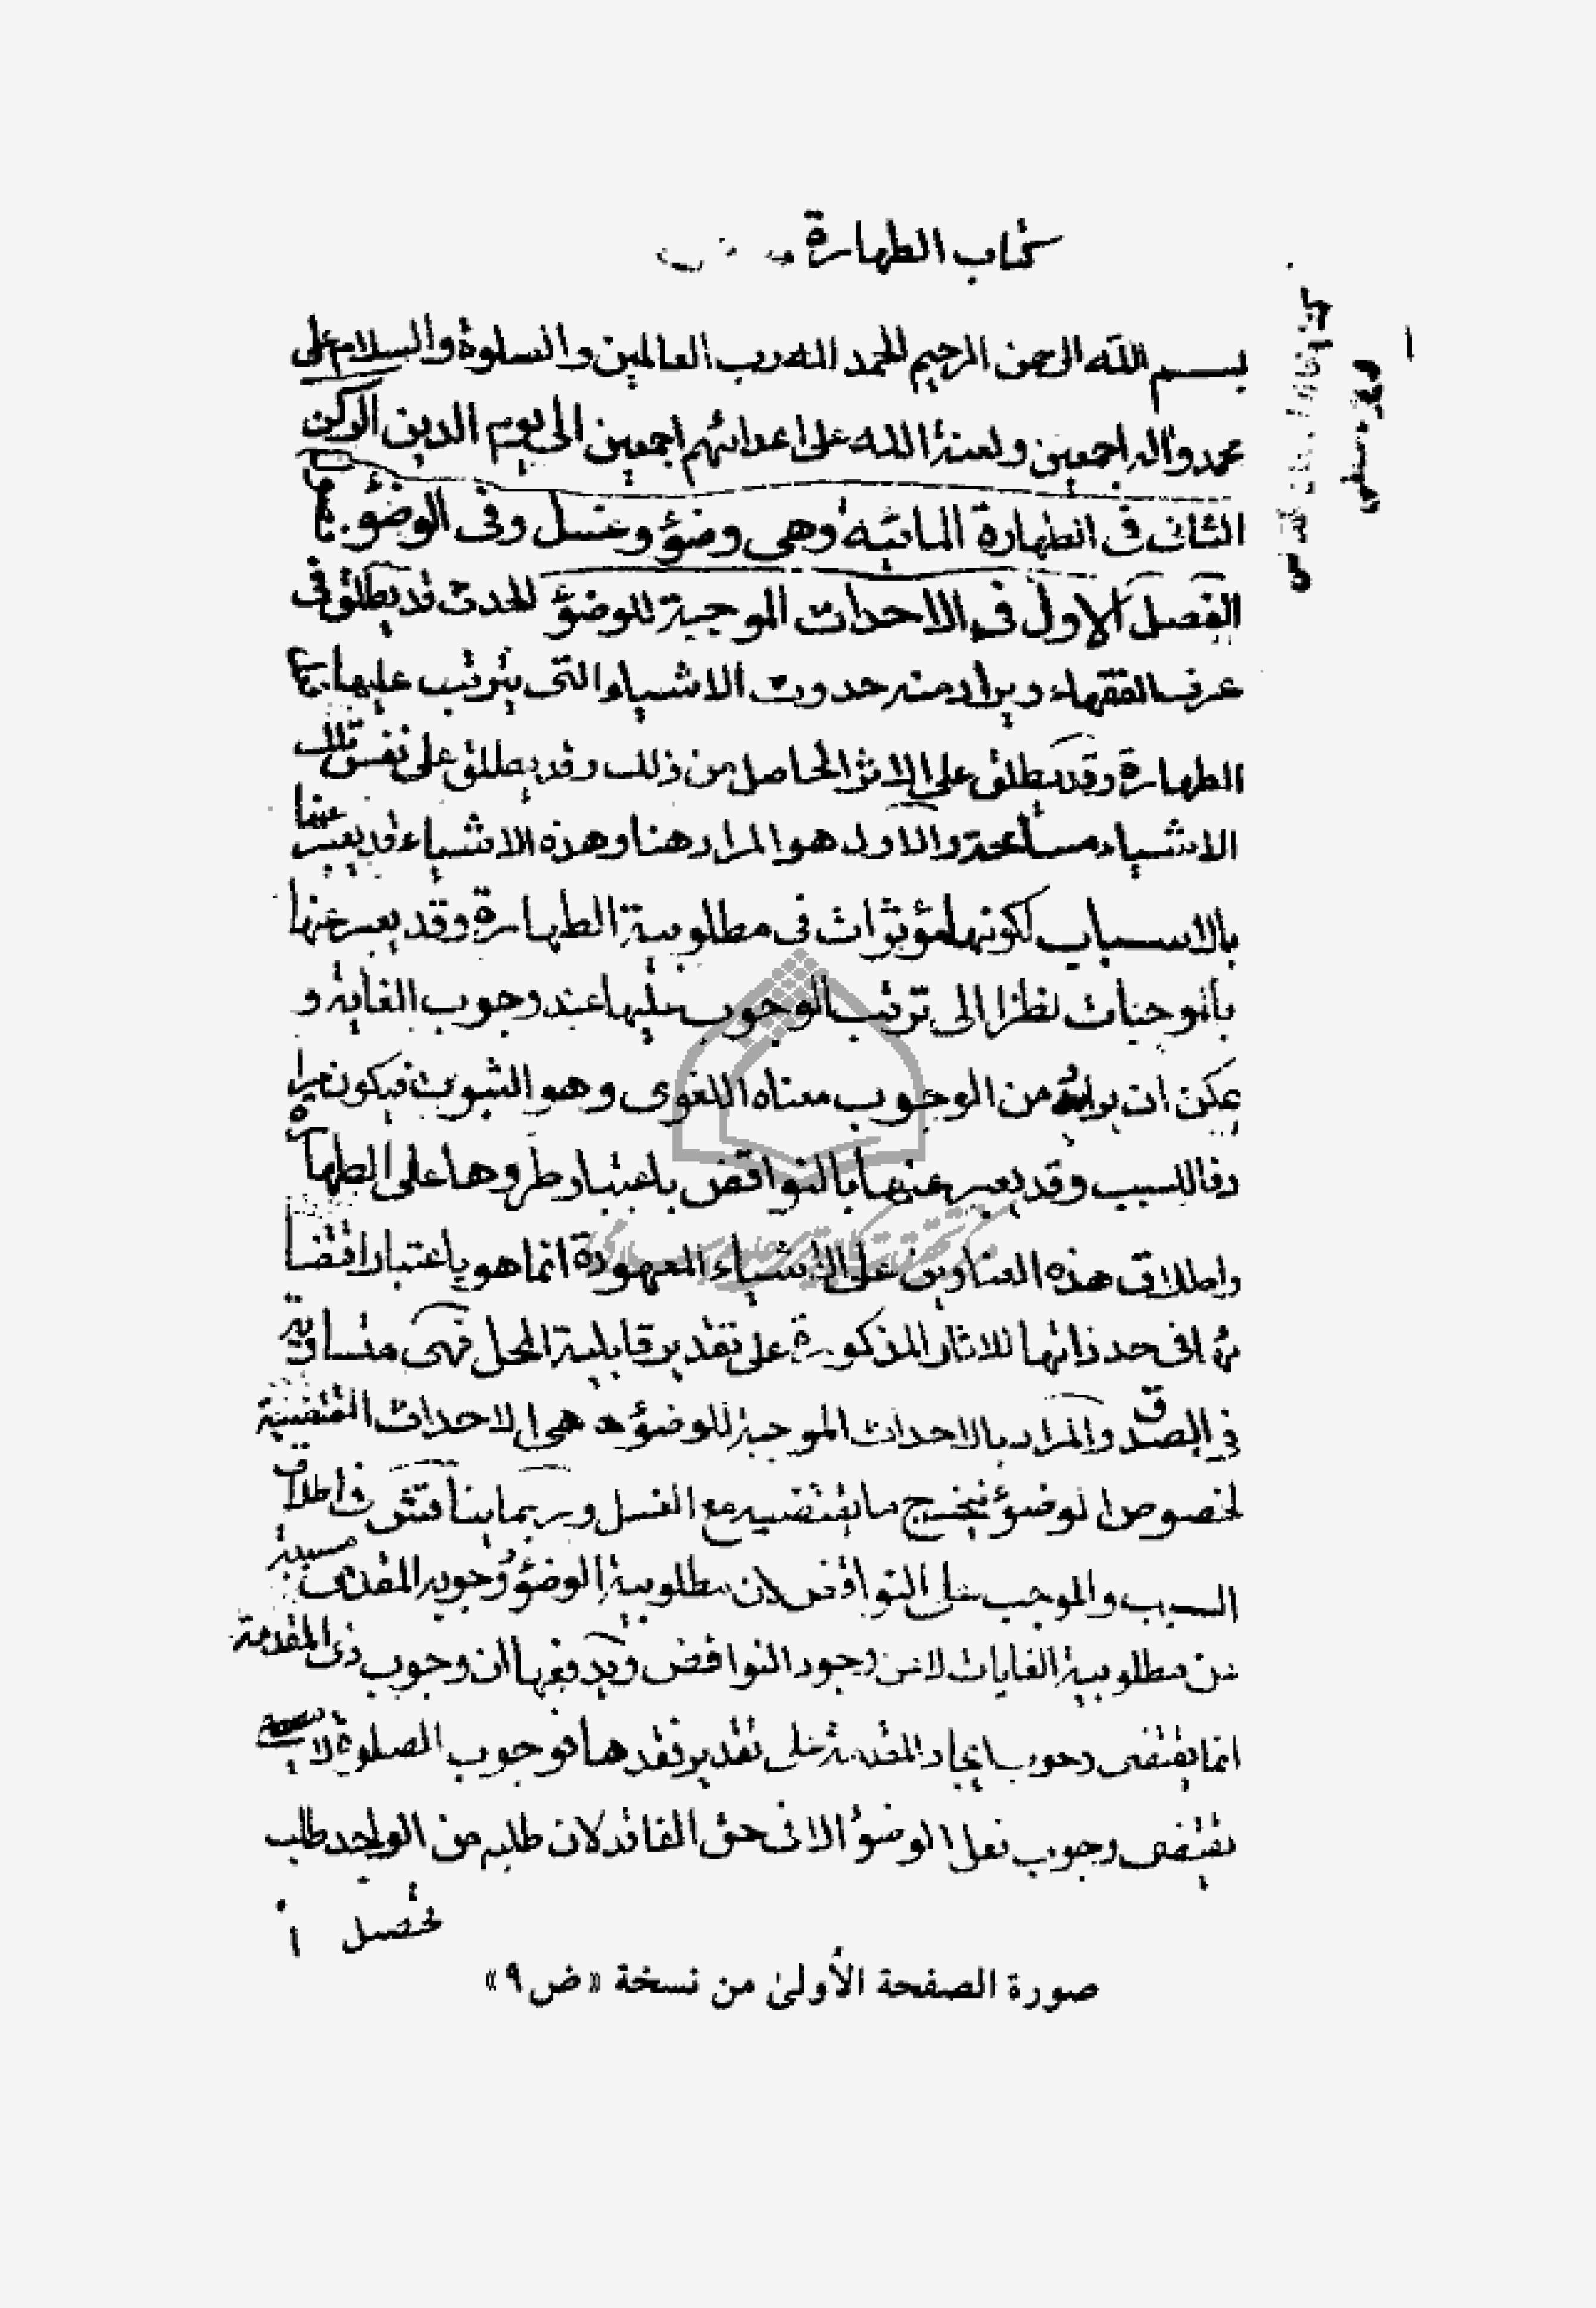 كتاب الطهارة
بسم الله الرحمن الرحيم الحمد لله رب العالمين والصلوة والسلام على
محمد واله اجمعين ولعنة الله على اعدائهم اجمعين الى يوم الدين الركن
الثانى فى الطهارة المائية وهى وضوء وغسل وفى الوضوء
الفصل الاول فى الاحداث الموجبة للوضوء الحدث قد يطلق فى
عرف الفقهاء ويراد منه حدوث الاشياء التى يترتب عليها
الطهارة وقد يطلق على الاثر الحاصل من ذلك وقد يطلق على نفس تلك
الاشياء مسامحة والاول هو المراد هنا وهذه الاشياء قد يعبر عنها
بالاسباب لكونها مؤثرات فى مطلوبية الطهارة وقد يعبر عنها
بالموجبات نظرا الى ترتب الوجوب عليها عند وجوب الغاية و
يمكن ان يراد من الوجوب معناه اللغوى وهو الثبوت فيكون مرا
دفا للسبب وقد يعبر عنها بالنواقض باعتبار طروها على الطهارة
واطلاق هذه العناوين على الاشياء المعهودة انما هو باعتبار اقتضا
ئها فى حد ذاتها للاثار المذكورة على تقدير قابلية المحل فهى متساوية
فى الصدق والمراد بالاحداث الموجبة للوضوء هى الاحداث المقتضية
لخصوص الوضوء فيخرج ما يقتضيه مع الغسل وربما يناقش فى اطلاق
السبب والموجب على النواقض لان مطلوبية الوضوء ووجوبه المقدمى مسببة
عن مطلوبية الغايات لا عن وجود النواقض ويدفعها ان وجوب ذى المقدمة
انما يقتضى وجوب ايجاد المقدمة على تقدير فقدها فوجوب الصلوة لا
يقتضى وجوب فعل الوضوء الا فى حق الفاقد لان طلبه من الواجد طلب
صورة الصفحة الأولى من نسخة «ض ٩»